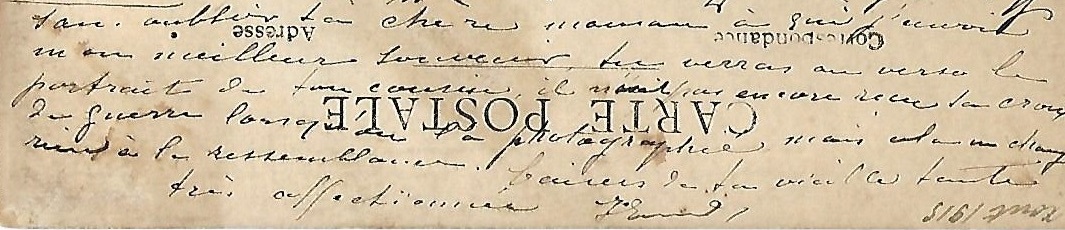 sans oublier ta chère maman à qui j'envoie
mon meilleur souvenir tu verras au verso le
portrait de ton cousin, il n'avait pas encore reçu sa croix
de guerre lorsqu'on l'a photographié mais cela ne change
rien à la ressemblance. baisers de ta vieille tante
très affectionnée
Adresse
Correspondance
CARTE POSTALE
août 1915